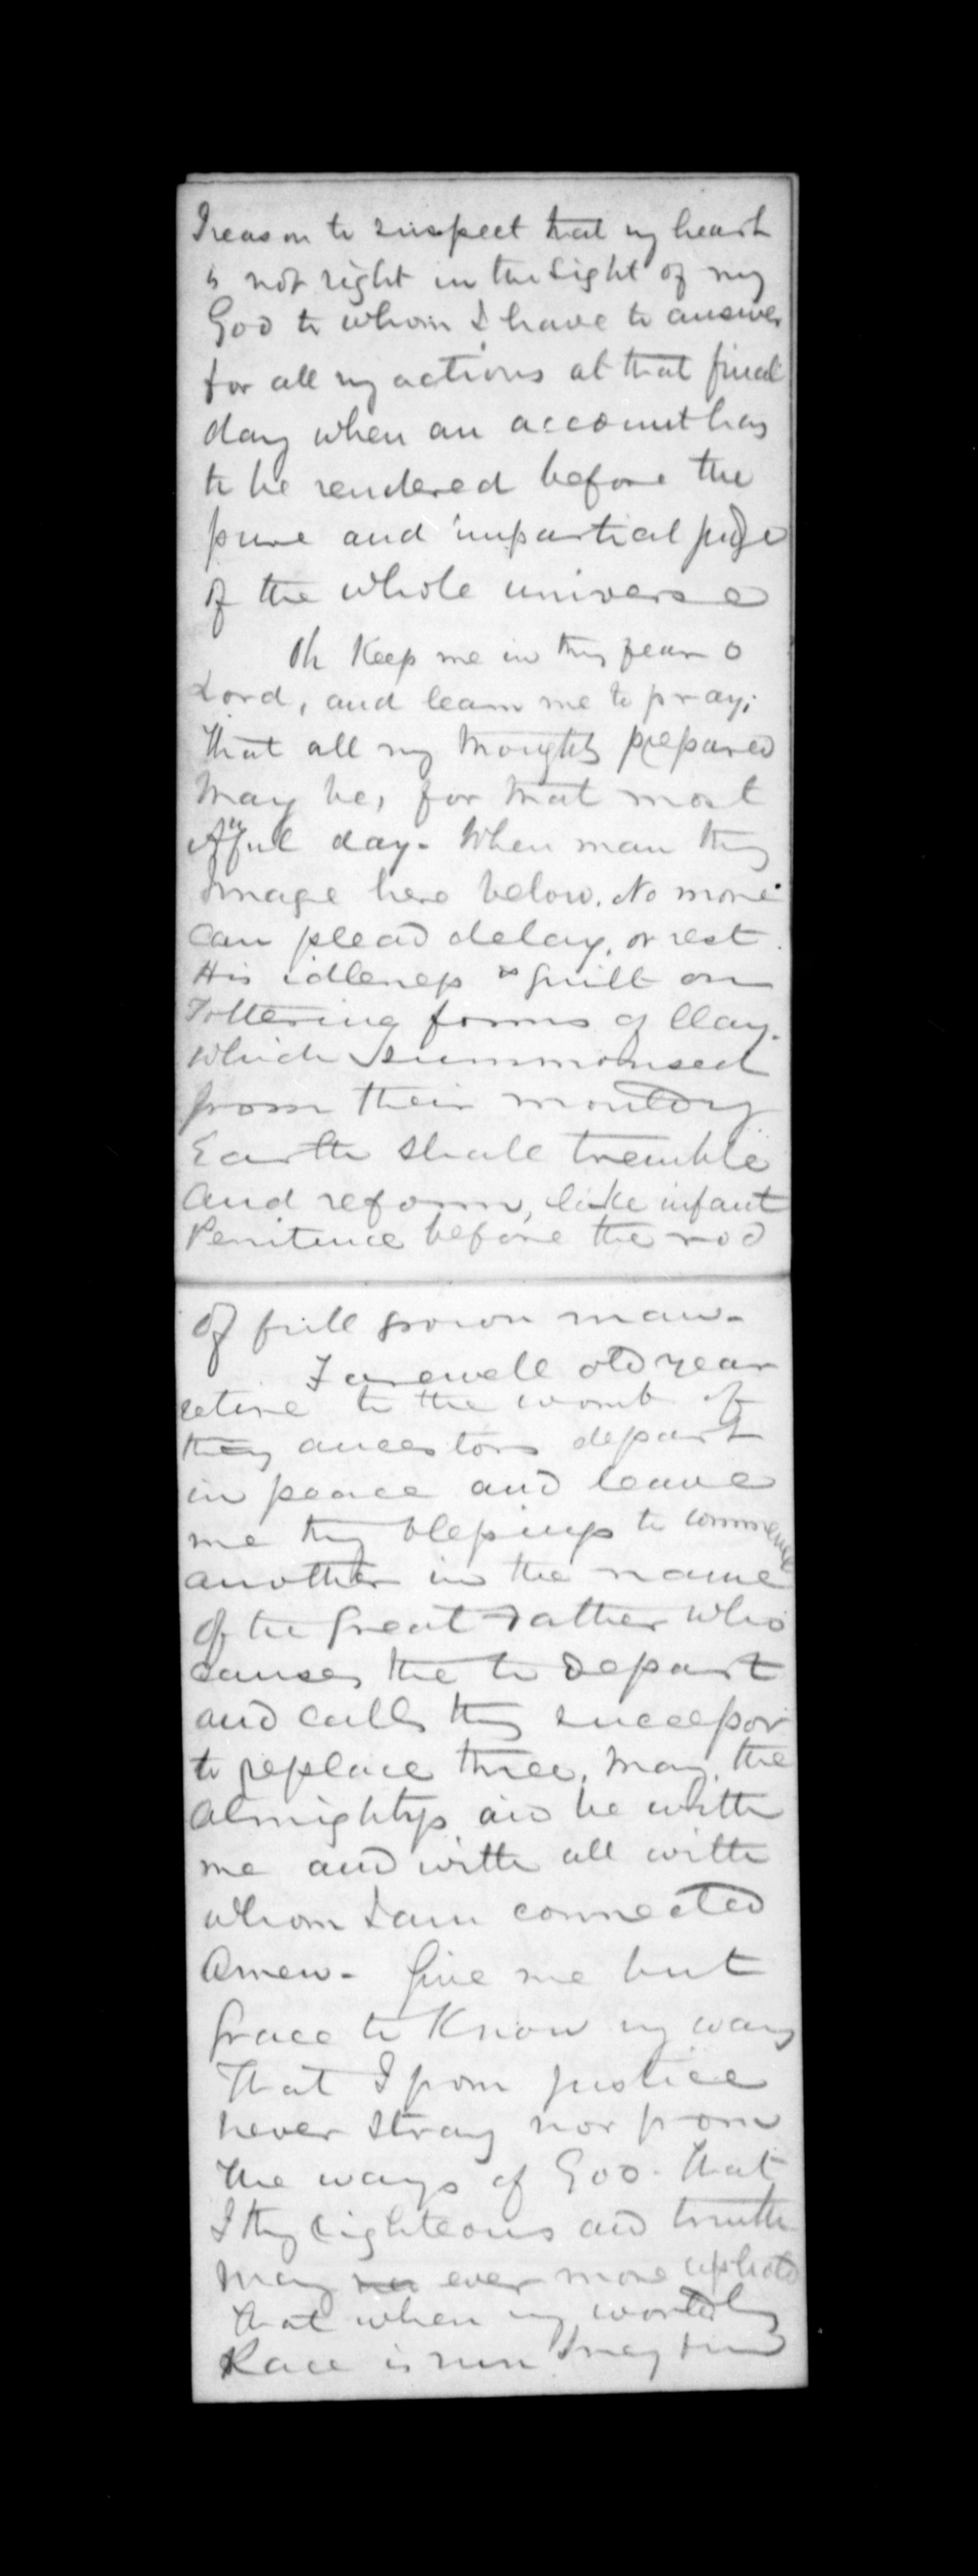 I reason to suspect that my heart
is not right in the sight of my
God to whom I have to answer
for all my actions at that final
day when an account has
to be rendered before the
pure and impartial judge
of the whole universe
Oh Keep me in thy fear O
Lord, and learn me to pray;
That all my thoughts prepared
May be, for that most
Awful day. When man thy
Image here below. No more
Can plead delay, or rest
His idleness & guilt on
Tottering forms of Clay.
Which summonsed
from their mouldry
Earth shall tremble
And reform, like infant
Penitence before the rod
Of full grown man.
Farewell old year
retire to the womb of
thy ancestors depart
in peace and leave
me thy blessings to commence
another in the name
Of the Great Father who
causes the to depart
and calls thy successor
to replace thee, May the
Almightys aid be with
me and with all with
whom I am connected
Amen. Give me but
Grace to Know my way
That I from justice
never stray nor from
The ways of God. That
I thy righteous and truth
May ever more uphold
That when my worldly
Race is run I may